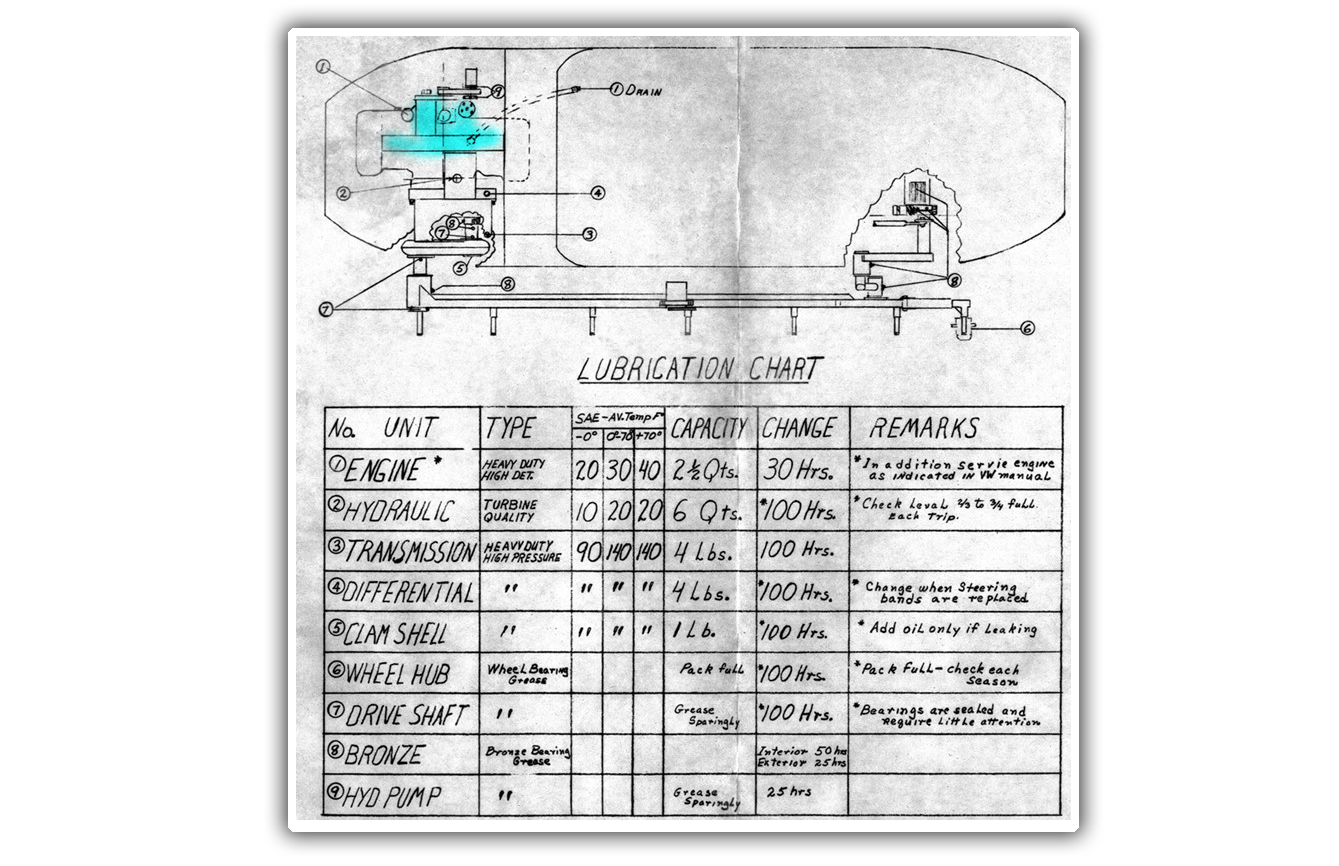 ①
⑨
① DRAIN
②
④
⑧
⑦
③
⑤
⑧
⑧
⑦
⑥
LUBRICATION CHART
No. UNIT TYPE SAE-AV.Temp F° CAPACITY CHANGE REMARKS
-0° 0°-70° +70°
① ENGINE * HEAVY DUTY HIGH DET. 20 30 40 2½ Qts. 30 Hrs. *In addition servie engine
as indicated in VW manual
② HYDRAULIC TURBINE QUALITY 10 20 20 6 Qts. *100 Hrs. *Check Leval ⅔ to ¾ full.
Each Trip.
③ TRANSMISSION HEAVY DUTY HIGH PRESSURE 90 140 140 4 Lbs. 100 Hrs.
④ DIFFERENTIAL " " " " 4 Lbs. *100 Hrs. * Change when Steering
bands are replaced
⑤ CLAM SHELL " " " " 1 Lb. *100 Hrs. * Add oil only if Leaking
⑥ WHEEL HUB Wheel Bearing Grease Pack full *100 Hrs. *Pack Full - check each
Season
⑦ DRIVE SHAFT " Grease Sparingly *100 Hrs. *Bearings are sealed and
Require Little attention
⑧ BRONZE Bronze Bearing Grease Interior 50 hrs
Exterior 25 hrs
⑨ HYD PUMP " Grease Sparingly 25 hrs